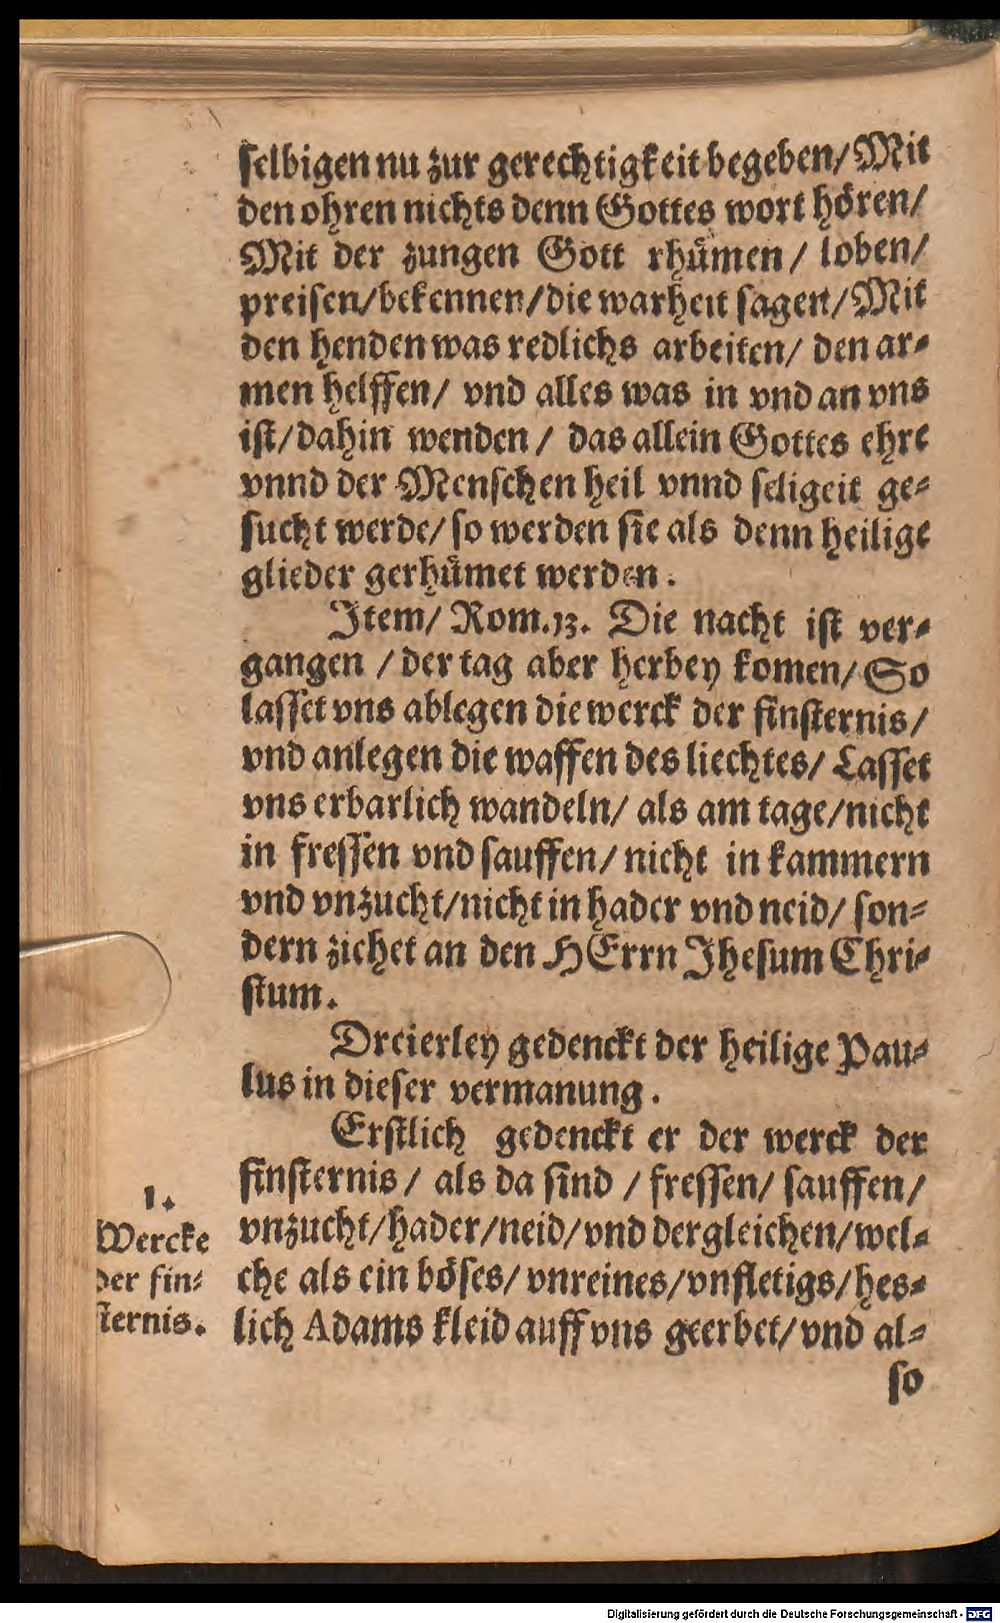 ſelbigen nu zur gerechtigkeit begeben/ Mit
den ohren nichts denn Gottes wort hören/
Mit der zungen Gott rhuͤmen / loben/
preiſen/bekennen/die warheit ſagen/ Mit
den henden was redlichs arbeiten/ den ar⸗
men helffen/ vnd alles was in vnd an vns
iſt/dahin wenden / das allein Gottes ehre
vnnd der Menſchen heil vnnd ſeligeit ge⸗
ſucht werde/ ſo werden ſie als denn heilige
glieder gerhuͤmet werden.
Item/ Rom.13. Die nacht iſt ver⸗
gangen / der tag aber herbey komen/ So
laſſet vns ablegen die werck der finſternis/
vnd anlegen die waffen des liechtes/ Laſſet
vns erbarlich wandeln/ als am tage/nicht
in freſſen vnd ſauffen/ nicht in kammern
vnd vnzucht/nicht in hader vnd neid/ ſon⸗
dern zichet an den HErrn Jheſum Chri⸗
ſtum.
Dreierley gedenckt der heilige Pau⸗
lus in dieſer vermanung.
Erſtlich gedenckt er der werck der
finſternis / als da ſind / freſſen/ ſauffen/
vnzucht/hader/neid/vnd dergleichen/wel⸗
che als ein böſes/ vnreines/vnfletigs/hes⸗
lich Adams kleid auff vns geerbet/vnd al⸗
ſo
1.
Wercke
der fin⸗
ſternis.
Digitalisierung gefördert durch die Deutsche Forschungsgemeinschaft - DFG